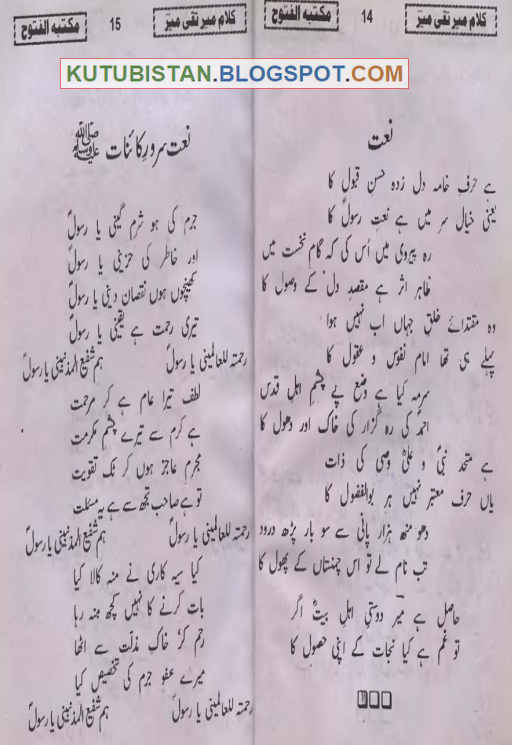 کلام میر تقی میر
14
مکتبہ الفتوح
نعت
ہے حرف خامہ دل زدہ حسن قبول کا
یعنی خیال سر میں ہے نعت رسولؐ کا
رہ پیروی میں اُس کی کہ گام نخست میں
ظاہر اثر ہے مقصدِ دل کے وصول کا
وہ مقتدائے خلق جہاں اب نہیں ہوا
پہلے ہی تھا امام نفوس و عقول کا
سرمہ کیا ہے وضع پے چشم اہل قدس
احمدؐ کی رہ گزار کی خاک اور دھول کا
ہے متحد نبیؐ و علیؓ وصی کی ذات
یاں حرف معتبر نہیں ہر بوالفضول کا
دھو منھ ہزار پانی سے سو بار پڑھ درود
تب نام لے تو اس چمنستاں کے پھول کا
حاصل ہے میرؔ دوستیٔ اہلِ بیتؓ اگر
تو غم ہے کیا نجات کے اپنی حصول کا
کلام میر تقی میر
15
مکتبہ الفتوح
KUTUBISTAN.BLOGSPOT.COM
نعت سرورِ کائنات ﷺ
جرم کی ہو شرم گینی یا رسولؐ
اور خاطر کی حزینی یا رسولؐ
کھینچوں ہوں نقصان دینی یا رسولؐ
تیری رحمت ہے یقینی یا رسولؐ
رحمتہ للعالمینی یا رسولؐ ہم شفیع المذنبینی یا رسولؐ
لطف تیرا عام ہے کر مرحمت
ہے کرم سے تیرے چشم مکرمت
مجرم عاجز ہوں کر ٹک تقویت
تو ہے صاحب تجھ سے ہے یہ مسئلت
رحمتہ للعالمینی یا رسولؐ ہم شفیع المذنبینی یا رسولؐ
کیا سیہ کاری نے منہ کالا کیا
بات کرنے کا نہیں کچھ منہ رہا
رحم کر خاکِ مذلت سے اٹھا
میرے عفوِ جرم کی تخصیص کیا
رحمتہ للعالمینی یا رسولؐ ہم شفیع المذنبینی یا رسولؐ